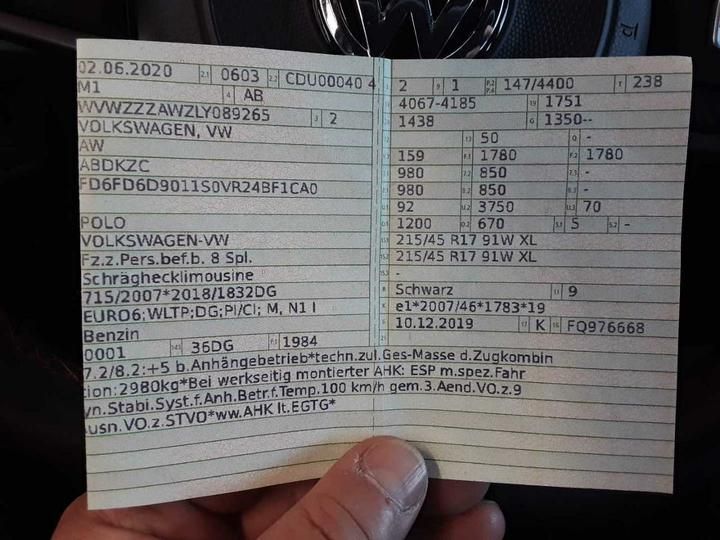 02.06.2020 2.1 0603 2.2 CDU00040 4
M1 4 AB
WVWZZZAWZLY089265 3 2
VOLKSWAGEN, VW
AW
ABDKZC
FD6FD6D9011S0VR24BF1CA0
POLO
VOLKSWAGEN-VW
Fz.z.Pers.bef.b. 8 Spl.
Schräghecklimousine
715/2007*2018/1832DG
EURO6;WLTP;DG;PI/CI; M, N1 I
Benzin
0001 14.1 36DG P.1 1984
2 9 1 P.2 P.4 147/4400 T 238
4067-4185 19 1751
1438 G 1350--
13 50 Q -
159 F.1 1780 F.2 1780
980 7.2 850 7.3 -
980 8.2 850 -
92 U.2 3750 U.3 70
1200 O.2 670 S.1 5 S.2 -
215/45 R17 91W XL
215/45 R17 91W XL
-
R Schwarz 11 9
K e1*2007/46*1783*19
6 10.12.2019 17 K 16 FQ976668
7.2/8.2:+5 b.Anhängebetrieb*techn.zul.Ges-Masse d.Zugkombin
tion:2980kg*Bei werkseitig montierter AHK: ESP m.spez.Fahr
yn.Stabi.Syst.f.Anh.Betr.f.Temp.100 km/h gem.3.Aend.VO.z.9
Ausn.VO.z.STVO*ww.AHK lt.EGTG*